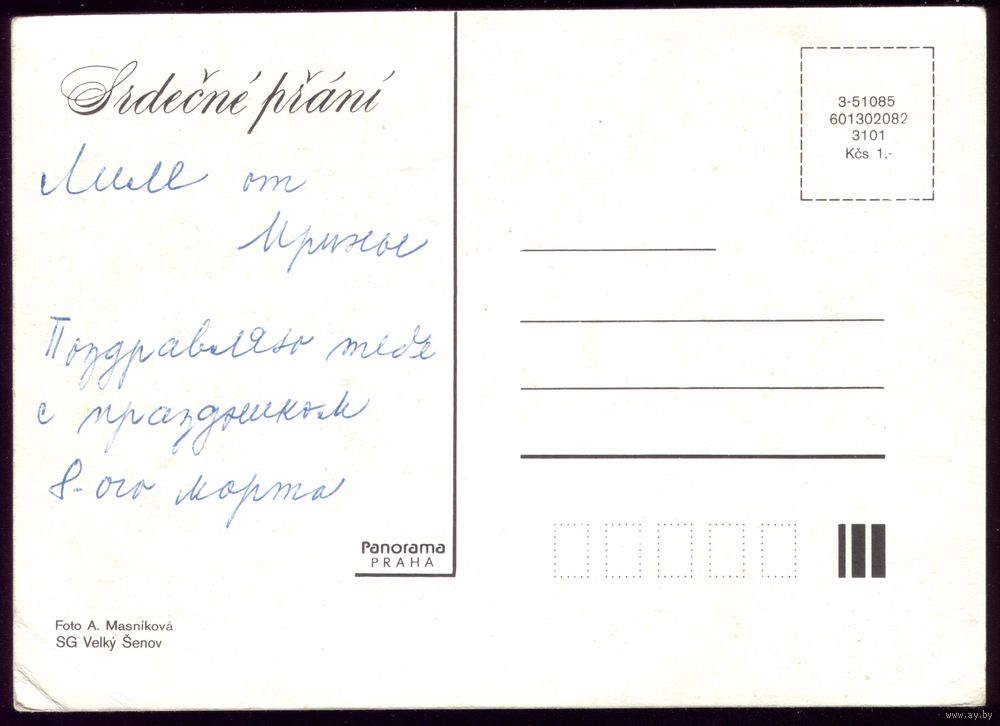 Srdečné přání
Лиле от
Ирины
Поздравляю тебя
с праздником
8-ого марта
Panorama
PRAHA
Foto A. Masníková
SG Velký Šenov
3-51085
601302082
3101
Kčs 1,-
www.ay.by